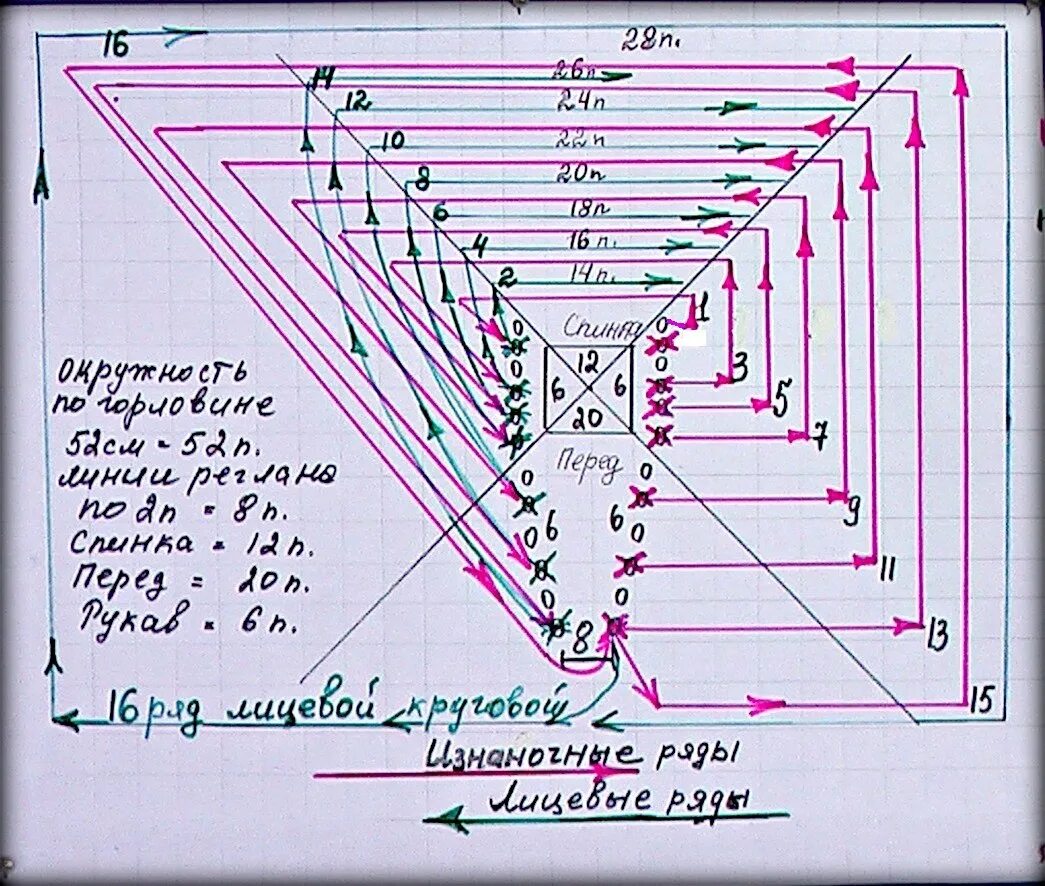 16
28п.
14
26п
12
24п
10
22п
8
20п
6
18п
4
16п.
2
14п.
1
Спинка
12
6
6
20
Перед
3
5
7
6
6
9
11
13
15
8
окружность
по горловине
52см = 52п.
линии реглана
по 2п = 8п.
Спинка = 12п.
Перед = 20п.
Рукав = 6п.
16 ряд лицевой круговой
Изнаночные ряды
Лицевые ряды